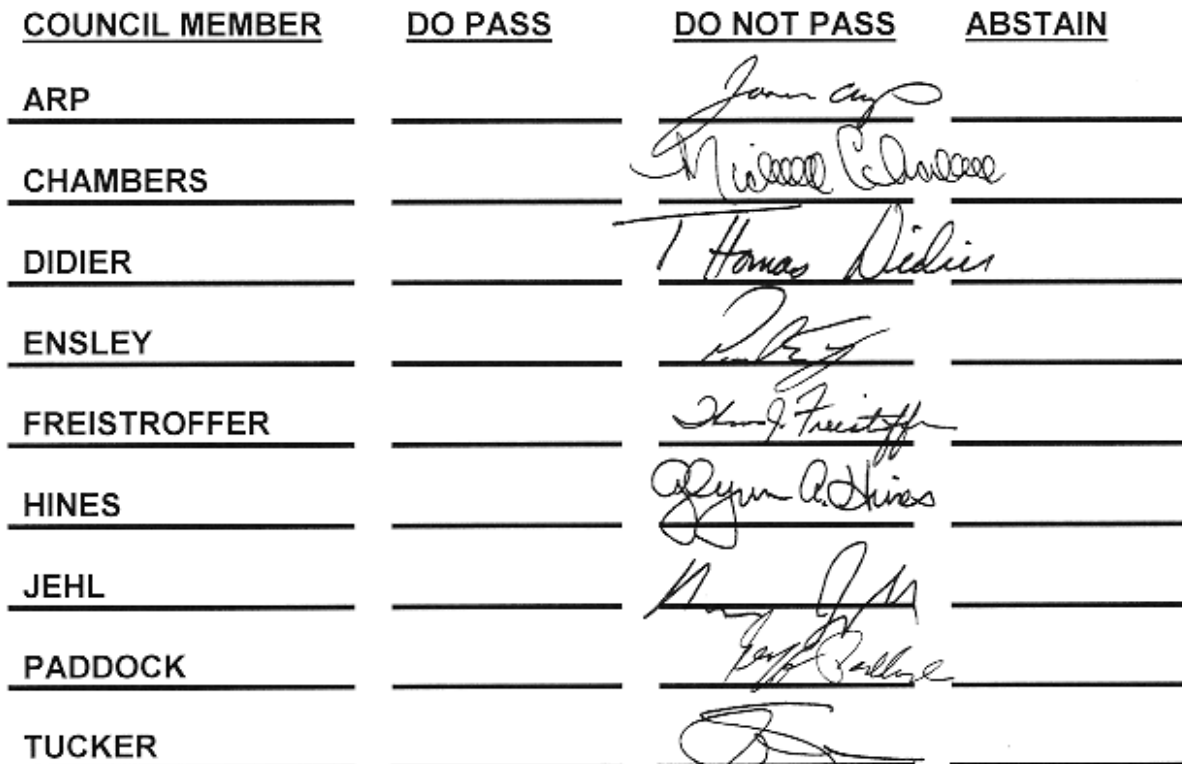 COUNCIL MEMBER DO PASS DO NOT PASS ABSTAIN
ARP
CHAMBERS
DIDIER THomas Didier
ENSLEY
FREISTROFFER J. Freistroffer
HINES Glynn A. Hines
JEHL
PADDOCK Geoff Paddock
TUCKER